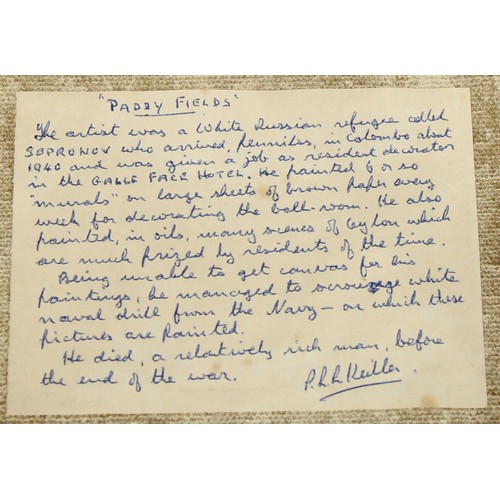 "PADDY FIELDS"
The artist was a White Russian refugee called
SOPRONOV who arrived, penniless, in Colombo about
1940 and was given a job as resident decorator
in the GALLE FACE HOTEL. He painted 6 or so
"murals" on large sheets of brown paper every
week for decorating the ball-room. He also
painted, in oils, many scenes of Ceylon which
are much prized by residents of the time.
Being unable to get canvas for his
paintings, he managed to scrounge white
naval drill from the Navy – on which these
pictures are painted.
He died, a relatively rich man, before
the end of the war.